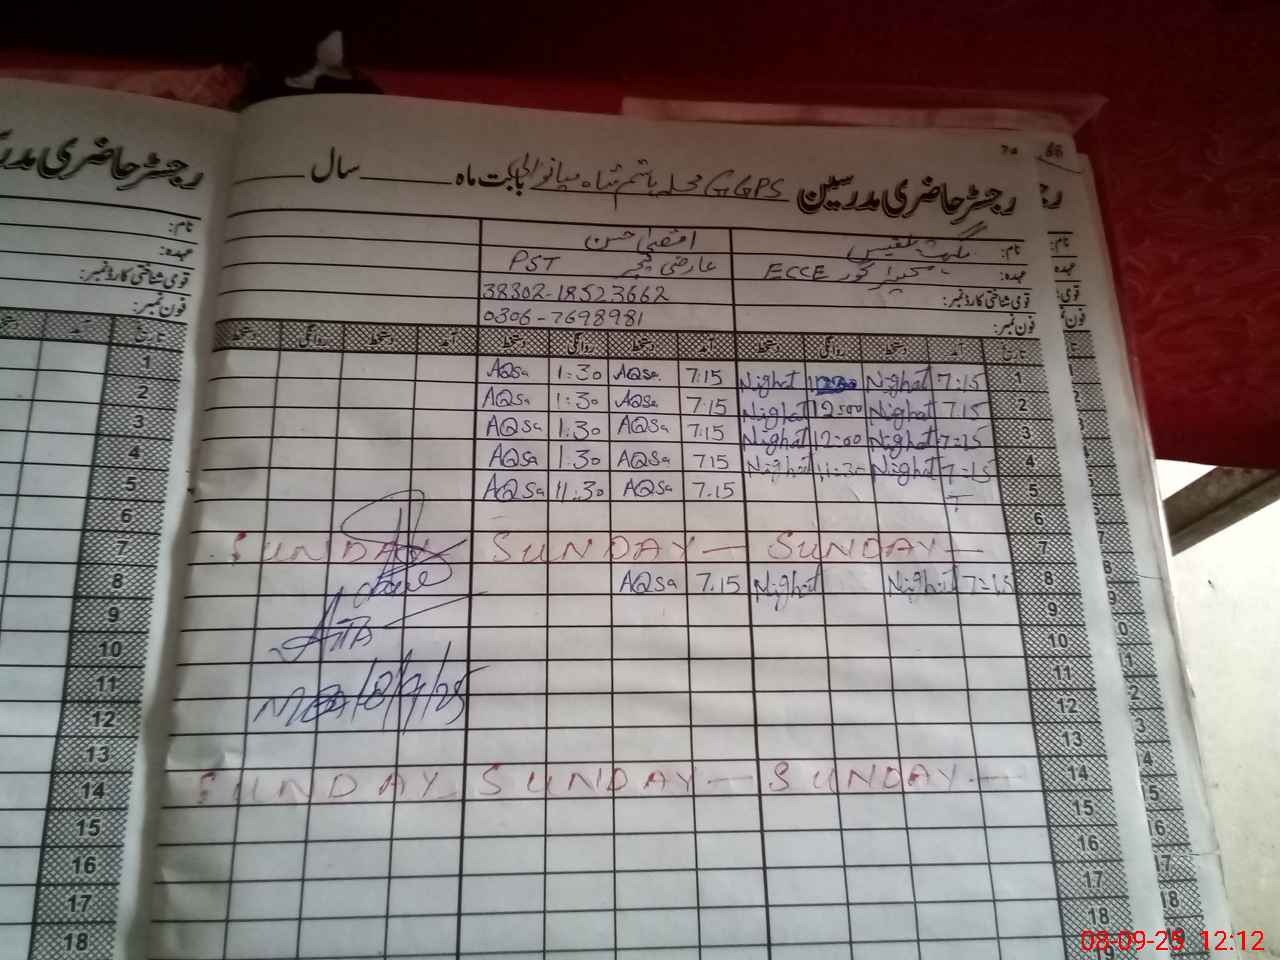 رجسٹر حاضری مدرسین GGPS محلہ ہاشم شاہ میانوالی بابت ماہ ـــــ سال ـــــ
رجسٹر حاضری مدر
70 66
نام: نگہت بلقیس اقصیٰ حسن
عہدہ: ECCE کیئر گور عارضی ٹیچر PST
قومی شناختی کارڈ نمبر: 38302-18523662
فون نمبر: 0306-7698981
تاریخ آمد دستخط روانگی دستخط آمد دستخط روانگی دستخط آمد دستخط روانگی دستخط
1 7:15 Nighat Nighat 7:15 AQsa 1:30 AQsa
2 7:15 Nighat 12:00 Nighat 7:15 AQsa 1:30 AQsa
3 7:15 Nighat 12:00 Nighat 7:15 AQsa 1:30 AQsa
4 7:15 Nighat 11:30 Nighat 7:15 AQsa 1:30 AQsa
5 7:15 AQsa 11:30 AQsa
6
7 SUNDAY — SUNDAY — SUNDAY —
8 7:15 Nighat Nighat 7.15 AQsa
9
10
11
12
8/9/25
13
14 SUNDAY — SUNDAY — SUNDAY
15
16
17
18
19
نام:
عہدہ:
قومی شناختی کارڈ نمبر:
فون نمبر:
تاریخ آمد دستخط
1
2
3
4
5
6
7
8
9
10
11
12
13
14
15
16
17
18
08-09-25 12:12